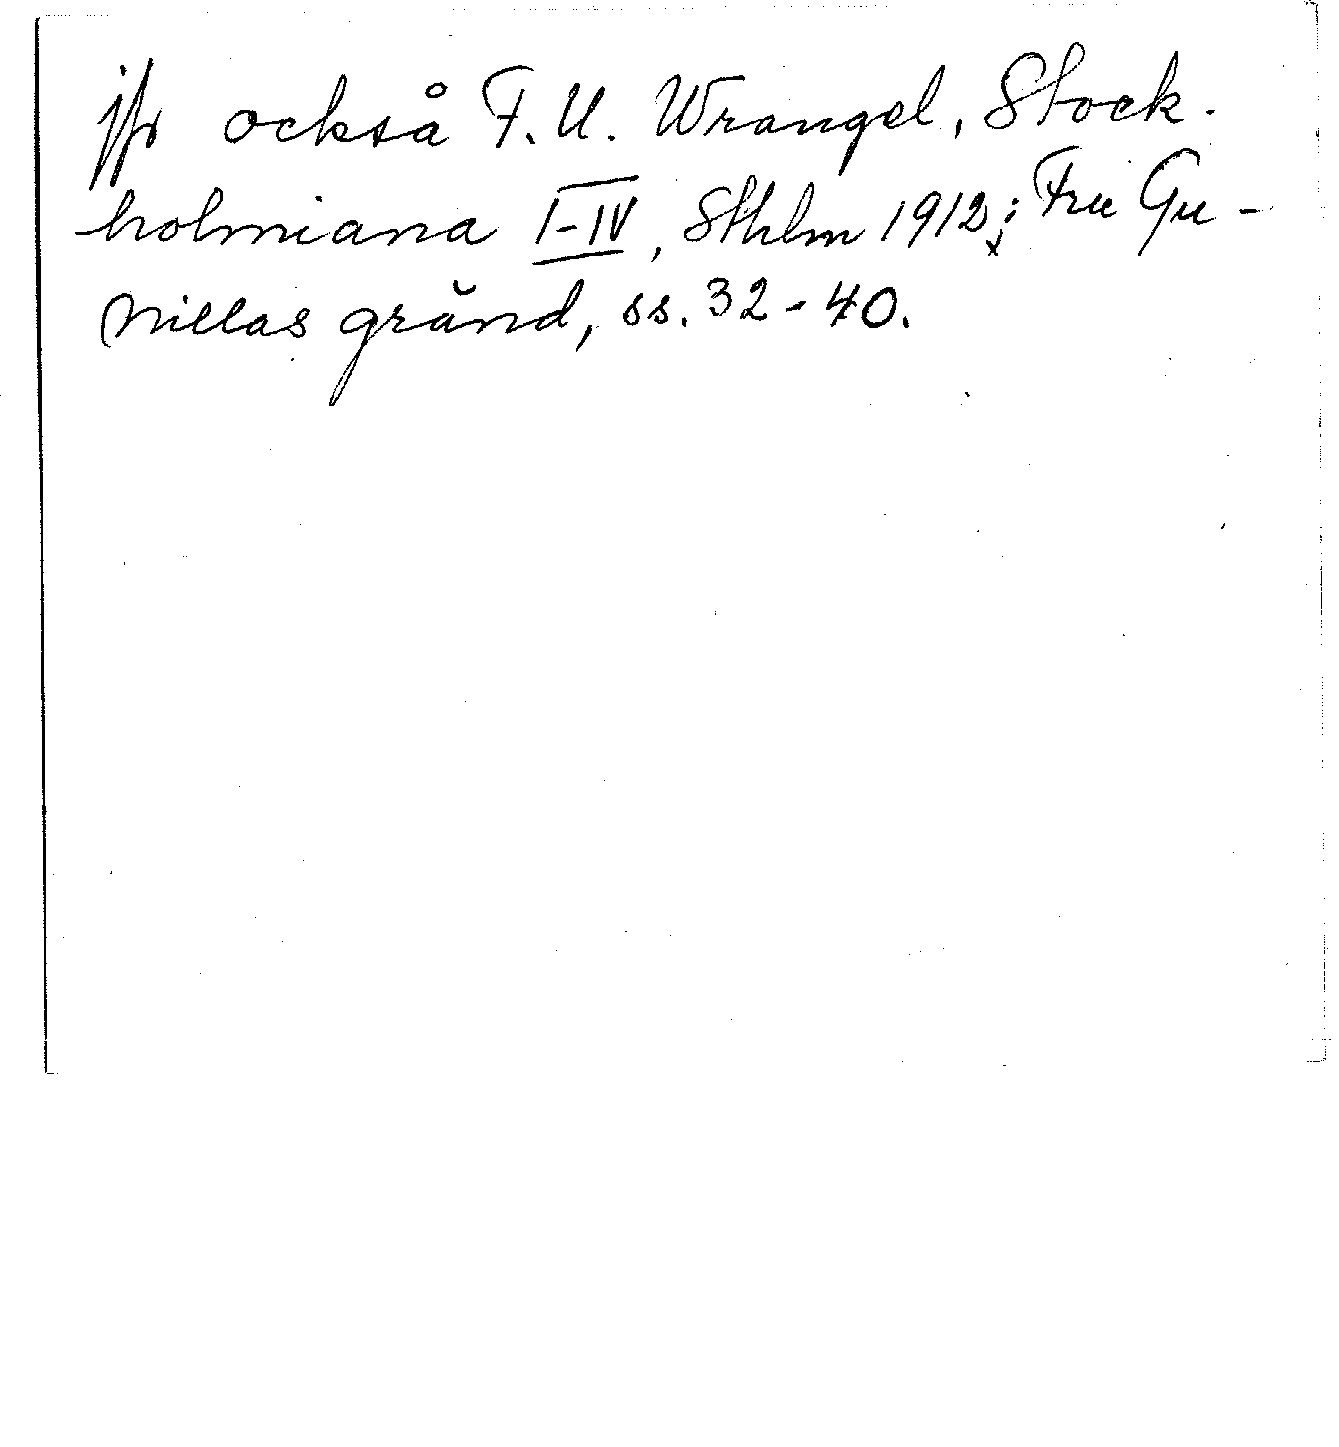 jfr också F.U. Wrangel, Stock-
holmiana I-IV, Sthlm 1912; Fru Gu-
nillas gränd, ss. 32-40.